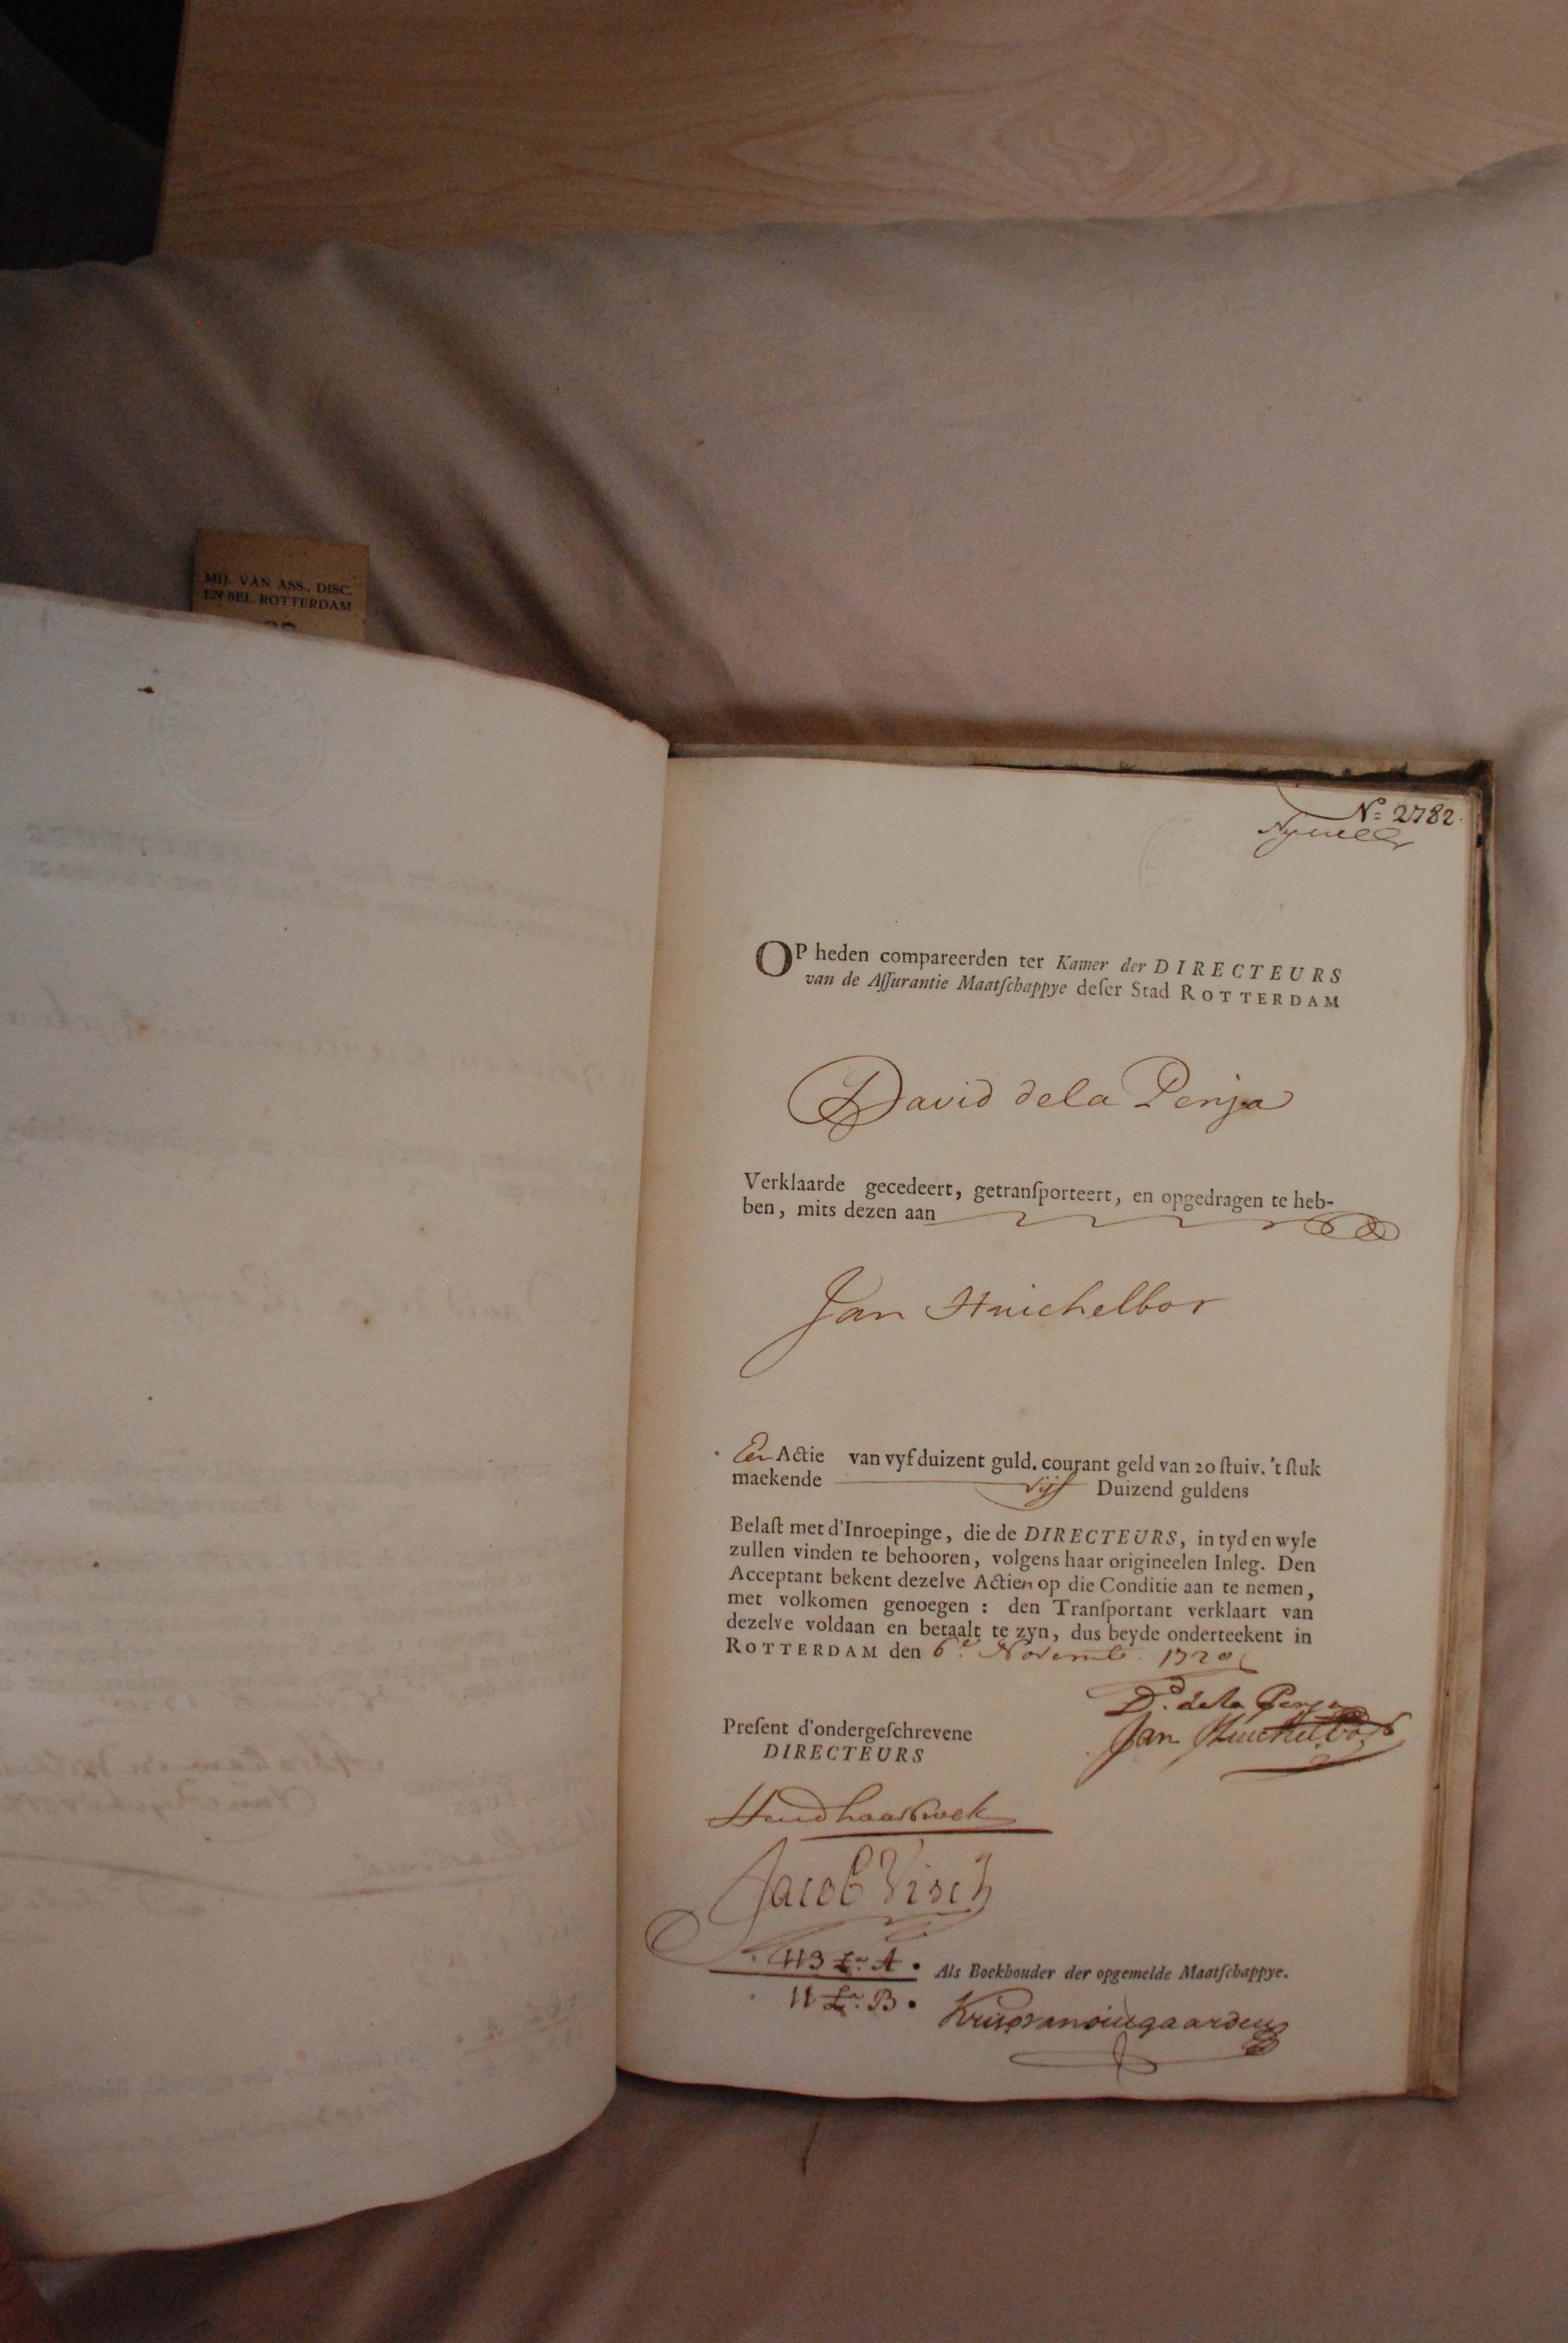 MIJ. VAN ASS., DISC.
EN BEL. ROTTERDAM
No 2782.
OP heden compareerden ter Kamer der DIRECTEURS
van de Aſſurantie Maatſchappye deſer Stad ROTTERDAM
David dela Penja
Verklaarde gecedeert, getranſporteert, en opgedragen te heb-
ben, mits dezen aan
Jan Huichelbos
Een Actie van vyf duizent guld. courant geld van 20 ſtuiv. 't ſtuk
maekende vijf Duizend guldens
Belaſt met d'Inroepinge, die de DIRECTEURS, in tyd en wyle
zullen vinden te behooren, volgens haar origineelen Inleg. Den
Acceptant bekent dezelve Actien op die Conditie aan te nemen,
met volkomen genoegen : den Tranſportant verklaart van
dezelve voldaan en betaalt te zyn, dus beyde onderteekent in
ROTTERDAM den 6e. Novemb. 1720
Dd. dela Penja
Jan Huichelbos
Preſent d'ondergeſchrevene
DIRECTEURS
Jacob Visch
113 La. A.
Als Boekhouder der opgemelde Maatſchappye.
11 La. B.